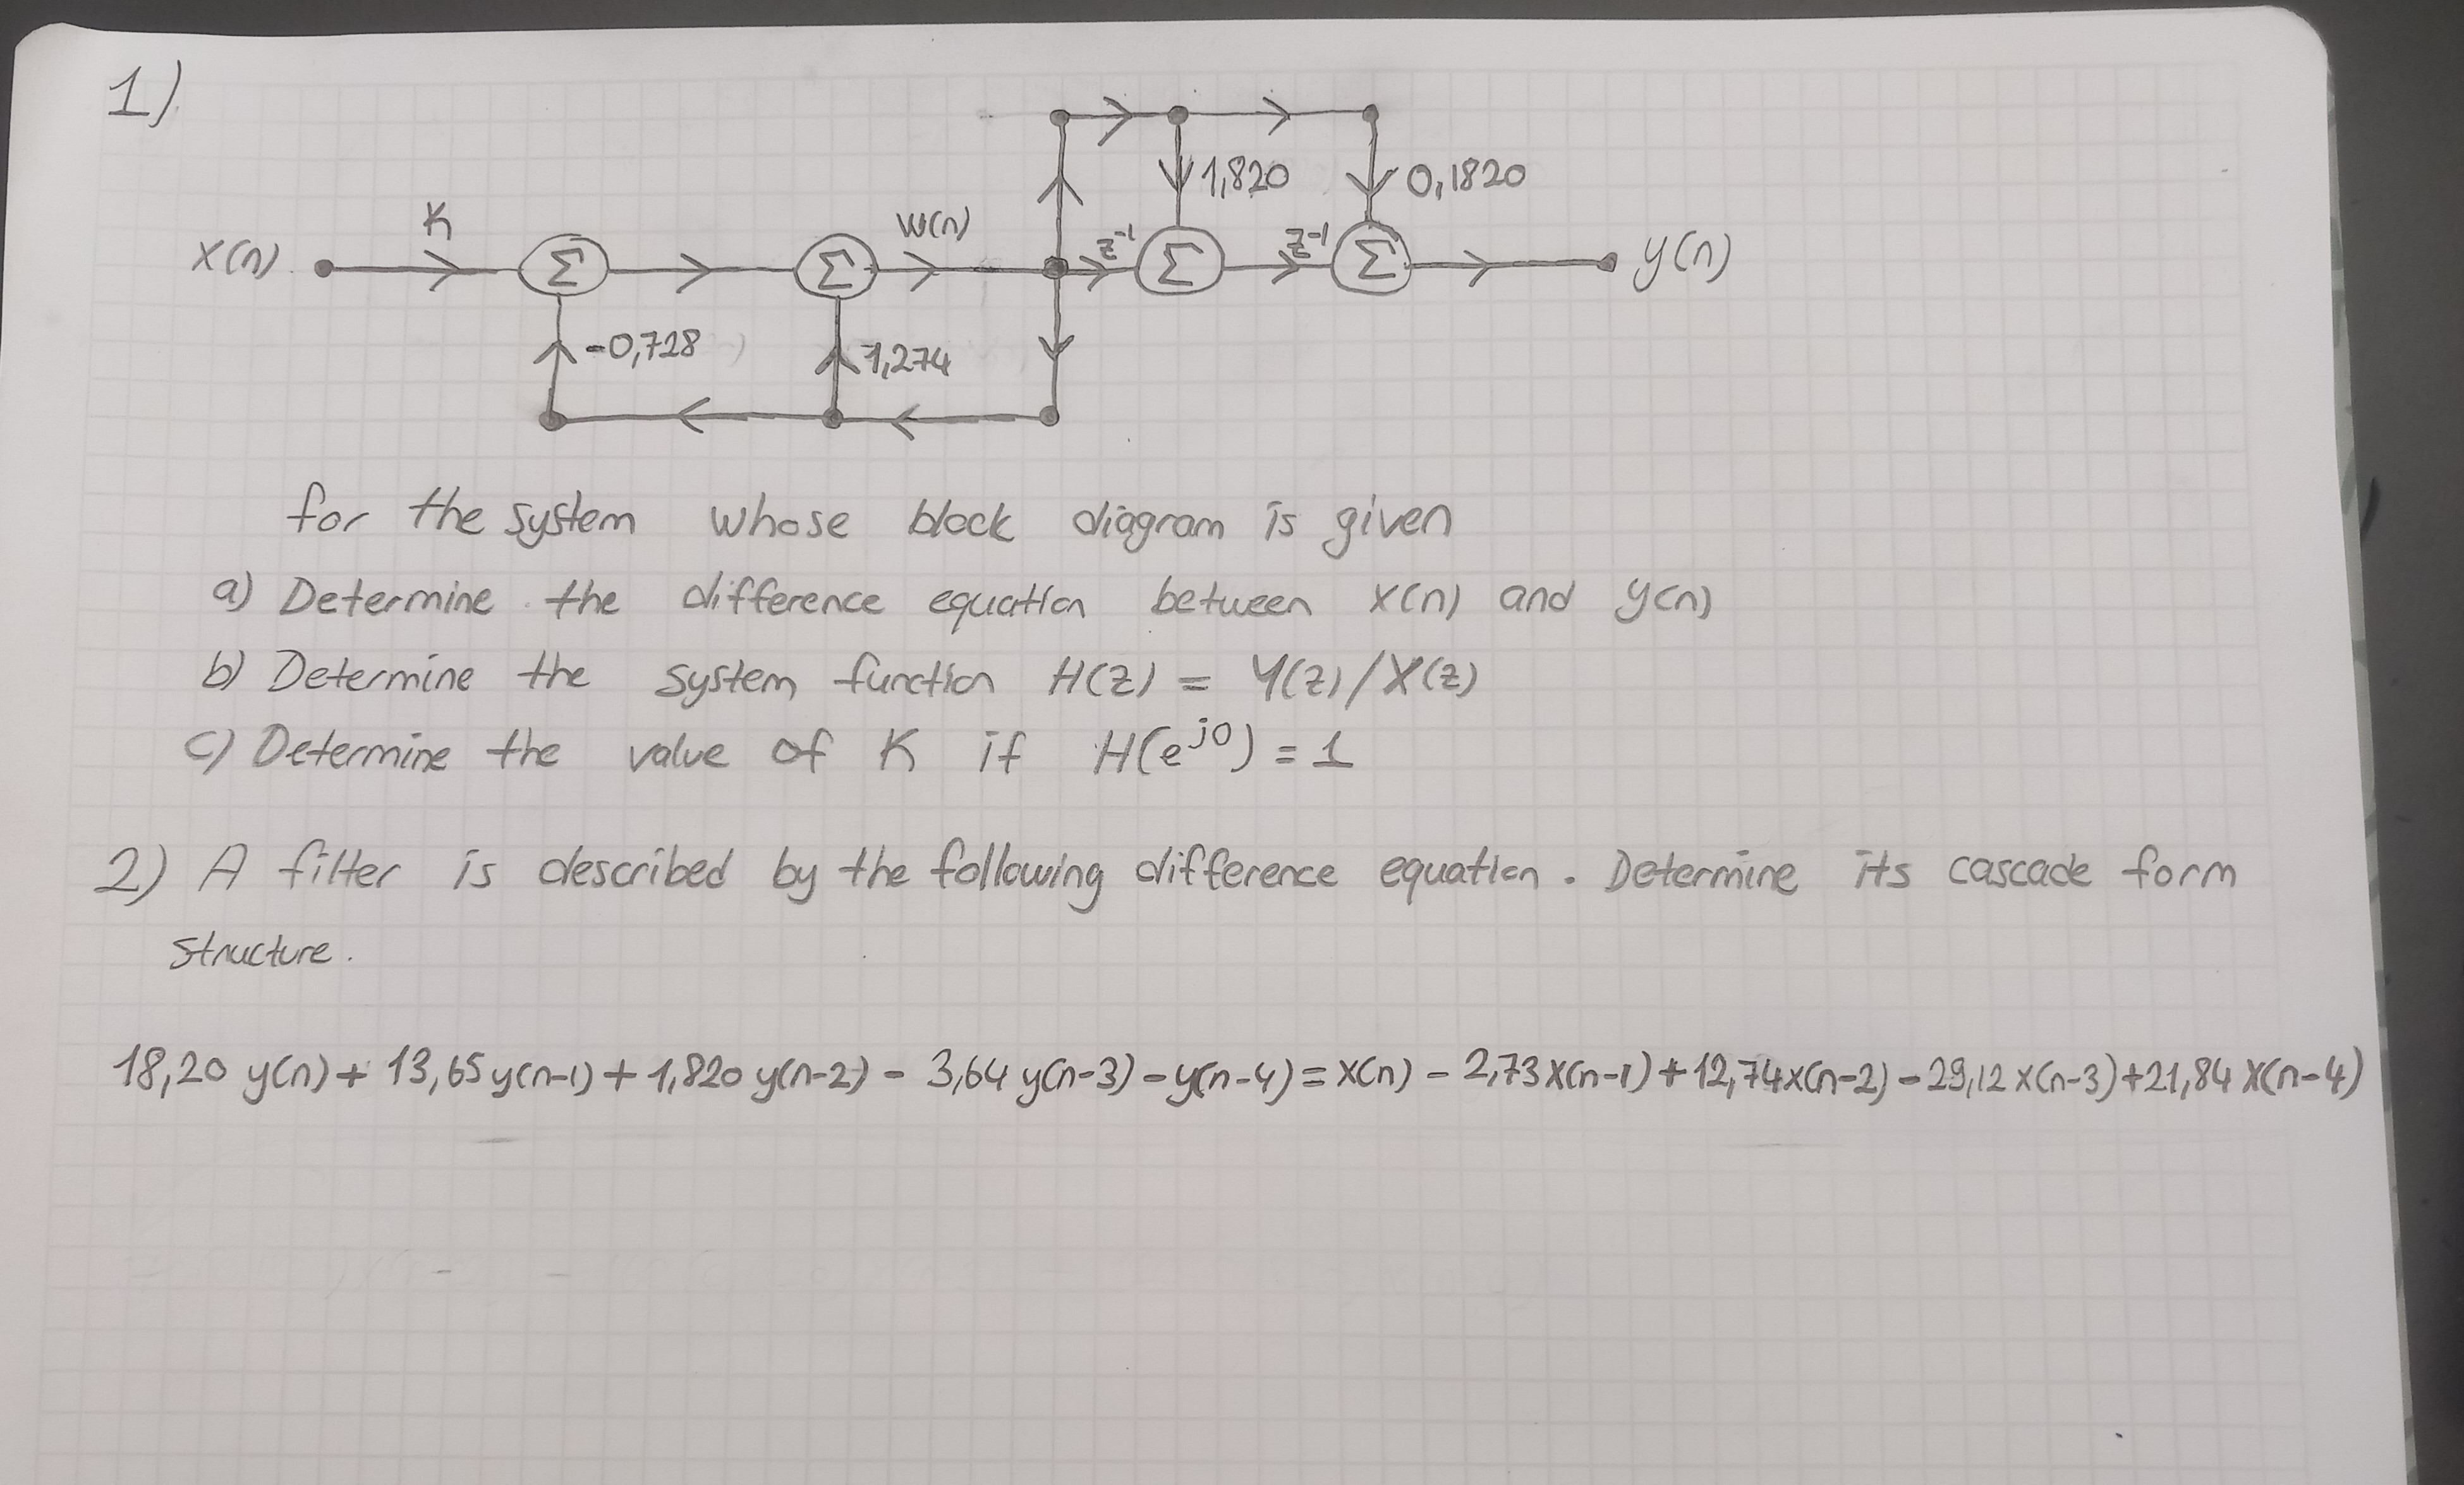 1)
1,820
0,1820
K
W(n)
X(n)
Σ
Σ
z⁻¹
Σ
z⁻¹
Σ
y(n)
-0,728
1,274
for the system whose block diagram is given
a) Determine the difference equation between X(n) and y(n)
b) Determine the system function H(z) = Y(z)/X(z)
c) Determine the value of K if H(e^{j0}) = 1
2) A filter is described by the following difference equation. Determine its cascade form
structure.
18,20 y(n) + 13,65 y(n-1) + 1,820 y(n-2) - 3,64 y(n-3) - y(n-4) = x(n) - 2,73 x(n-1) + 12,74 x(n-2) - 29,12 x(n-3) + 21,84 x(n-4)